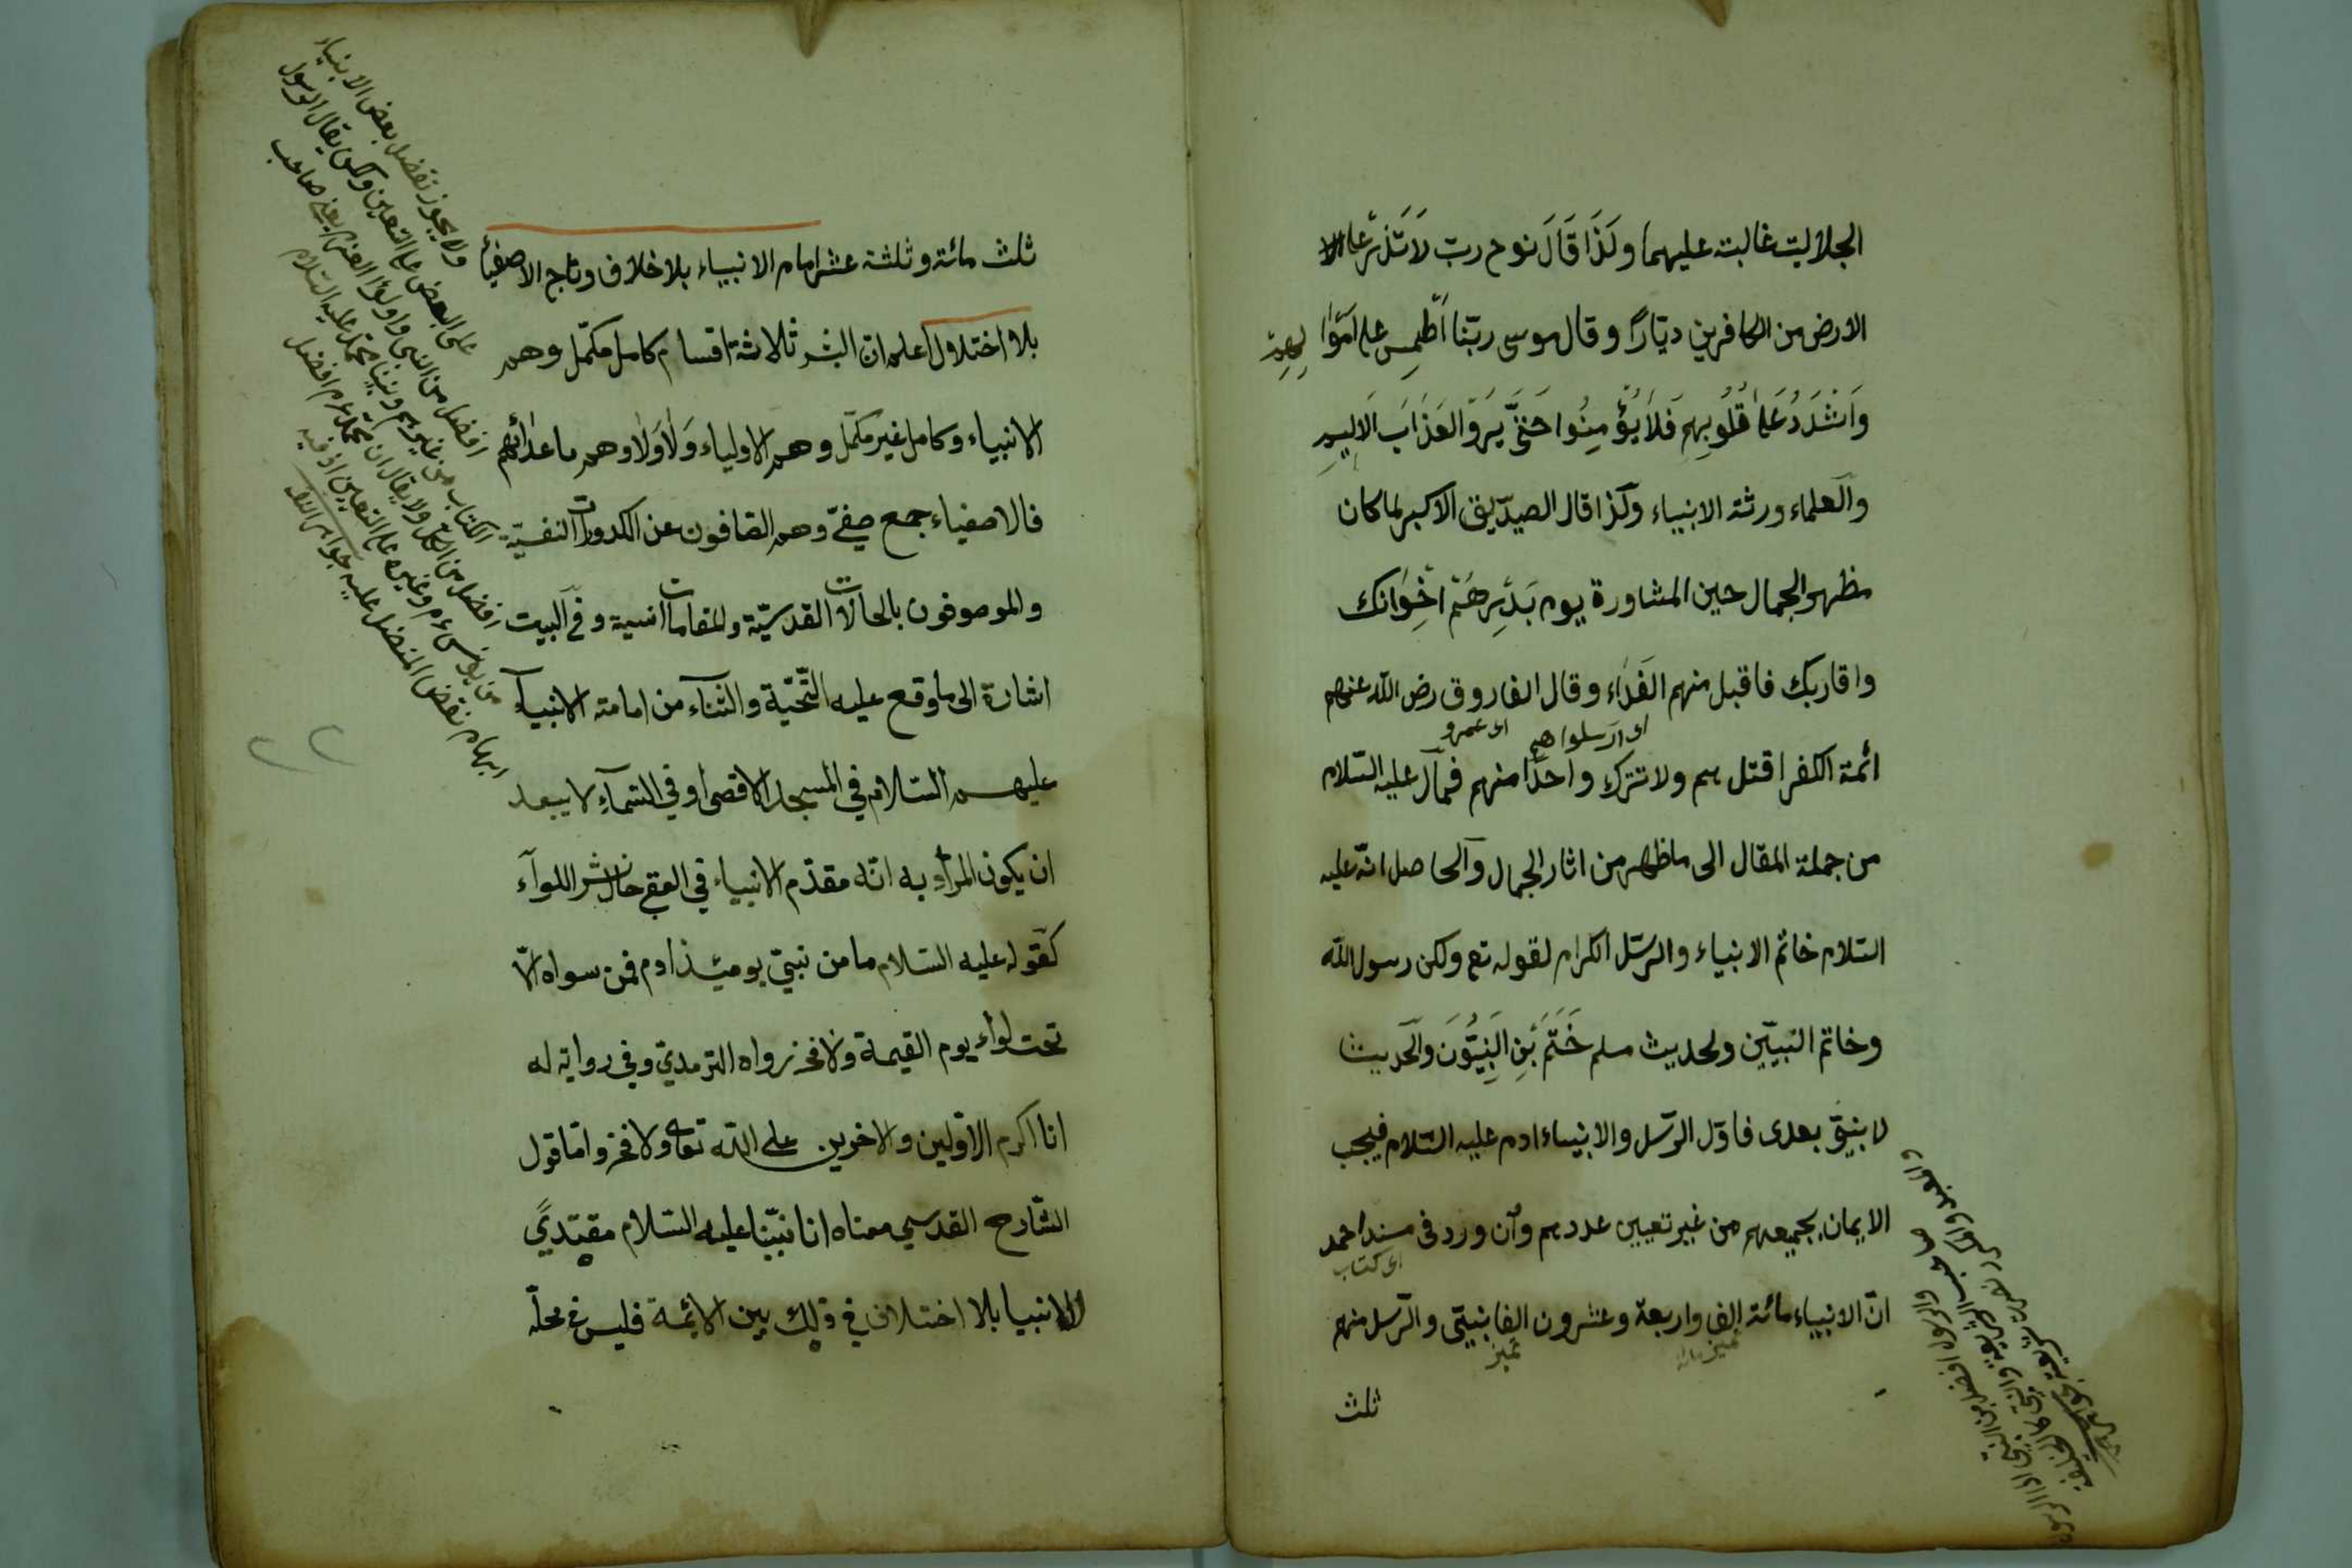 الجلاليت غالبته عليهما ولَذَا قَالَ نوح رب لاَ تَذَرْ على
الارض من الكافرين ديّارًا وقال موسى ربّنا أطْمِس على اموا لهم
وَاشْدُدْ عَلىٰ قُلُوبِهِم فَلاَ يُؤْمِنُوا حَتّىٰ يَرَوُا العَذَابَ الاَلِيمِ
والعلماء ورثة الانبياء وكذا قال الصدّيق الاكبر لما كان
مظهر الجمال حين المشاورة يوم بَدْرٍ هُمْ اخْوَانك
واقاربك فاقبل منهم الفداء وقال الفاروق رض الله عنهم
اى ارسلواهم اى عمرو
ائمة الكفر اقتل بهم ولا تترك واحدًا منهم فمال عليه السّلام
من جملة المقال الى ما ظهر من اثار الجمال والحاصل انّه عليه
السّلام خاتم الانبياء والرسّل الكرام لقوله تع ولكن رسول الله
وخاتم النبيّين ولحديث مسلم خُتِمَ بىَ النبِيُّونَ والحديث
لا نبىّ بعدى فاوّل الرسل والانبياء ادم عليه السّلام فيجب
الايمان بجميعهم من غير تعيين عددهم وان ورد فى مسند احمد
اى كتاب
انّ الانبياء مائة الف واربعة وعشرون الفا نبيّى والرّسل منهم
تميز
ثلث
والرسول افضل من النبى
ثلث مائة وثلثة عشر امام الانبياء بلا خلاف وتاج الاصفياء
بلا اختلال اعلم ان البشر ثلاثة اقسام كامل مكمّل وهم
الانبياء وكامل غير مكمّل وهم الاولياء وَلاَ وَلاَ وهم ما عدائهم
فالاصفياء جمع صفىّ وهم الصّافون عن الكدورات النفسيّة
والموصوفون بالحالات القدسيّة والمقامات انسية وفى البيت
اشارة الى ما وقع عليه التّحيّة والثناء من امامة الانبياء
عليهم السّلام فى المسجد الاقصى او فى السّماء لا يبعد
ان يكون المراد به انّه مقدّم الانبياء فى العقبى حال نشر اللوآء
كقوله عليه السّلام ما من نبىّ يومئذ ادم فمن سواه الاّ
تحت لواء يوم القيمة ولا فخر رواه الترمدىّ وفى رواية له
انا اكرم الاوّلين والاخرين على الله تعالى ولا فخر وامّا قول
الشّارح القدسي معناه انا نبيّنا عليه السّلام مقتدىً
الانبيا بلا اختلاف فى ذلك بين الائمة فليس فى محلّه
ولا يجوز تفضيل بعض الانبياء
على البعض على التعيين ولكن يقال الرسول
افضل من النبى واولوا العزم يعنى صاحب
الكتاب من غيرهم ونبينا محمد عليه السّلام
افضل من الكل ولا يقال ان محمد عم افضل
من يونس عم وغيره على التعيين اذ فيه
ابهام نقض المفضل عليه جواهر الفقه